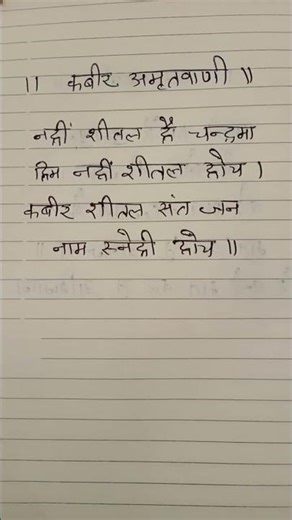 ।। कबीर अमृतवाणी ॥
नहीं शीतल है चन्द्रमा
हिम नहीं शीतल होय ।
कबीर शीतल संत जन
नाम स्नेही होय ॥